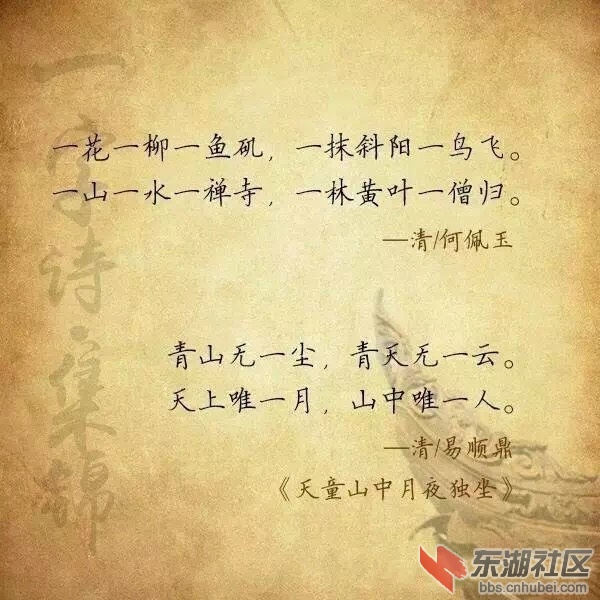 一字诗集锦
一花一柳一鱼矶，一抹斜阳一鸟飞。
一山一水一禅寺，一林黄叶一僧归。
—清/何佩玉
青山无一尘，青天无一云。
天上唯一月，山中唯一人。
—清/易顺鼎
《天童山中月夜独坐》
东湖社区
bbs.cnhubei.com